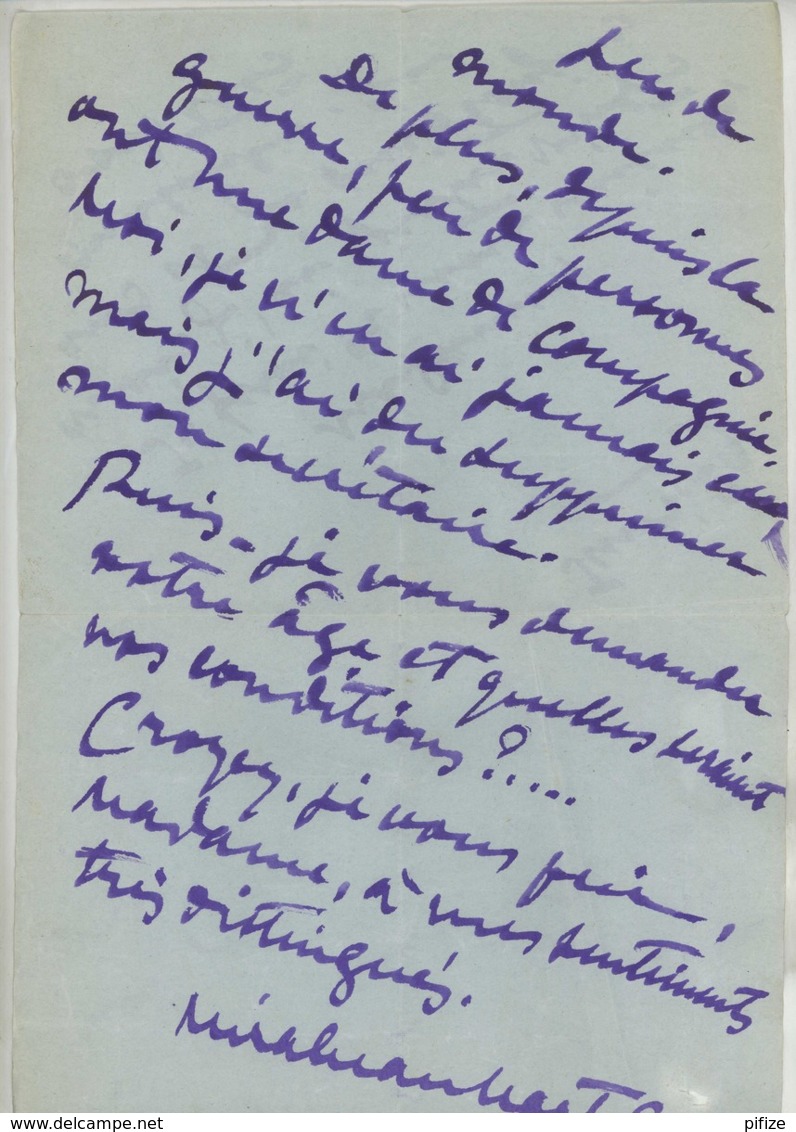 peu de
monde.
De plus, depuis la
guerre, peu de personnes
ont une dame de compagnie.
Moi, je n'en ai jamais eue
mais j'ai du supprimer
mon secrétaire.
Puis-je vous demander
votre âge et quelles seraient
vos conditions?....
Croyez, je vous prie,
Madame, à mes sentiments
très distingués.
www.delcampe.net
pifize